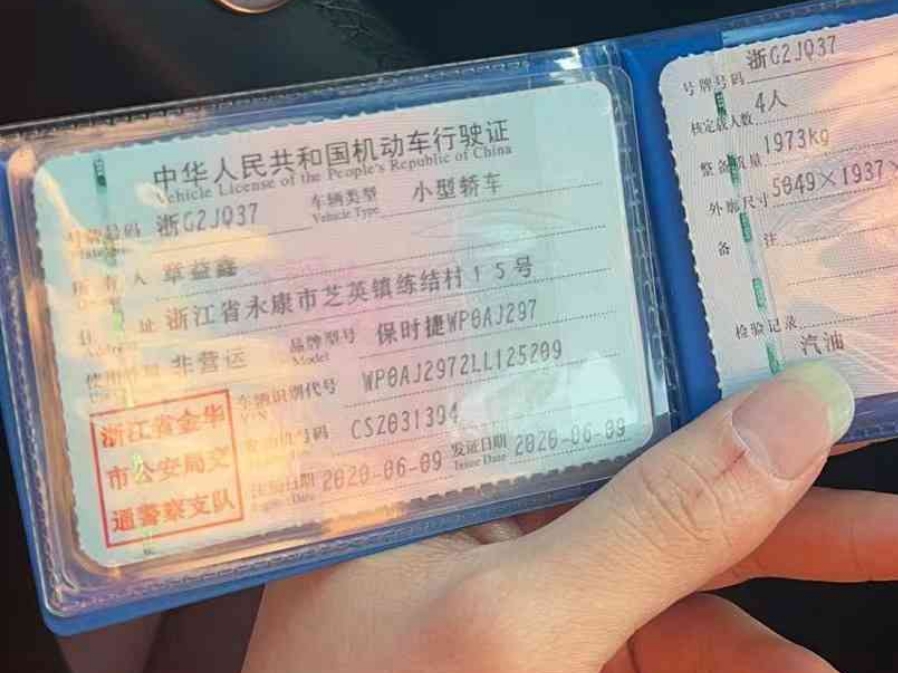 中华人民共和国机动车行驶证
Vehicle License of the People's Republic of China
号牌号码 浙G2JQ37 车辆类型 小型轿车
Vehicle Type
所有人 章益鑫
住址 浙江省永康市芝英镇练结村15号
使用性质 非营运 品牌型号 保时捷WP0AJ297
Model
车辆识别代号 WP0AJ2972LL125209
VIN
发动机号码 CS2031394
注册日期 2020-06-09 发证日期 2020-06-09
Issue Date
浙江省金华
市公安局交
通警察支队
号牌号码 浙G2JQ37
核定载人数 4人
整备质量 1973kg
外廓尺寸 5049×1937×
备注
检验记录
汽油